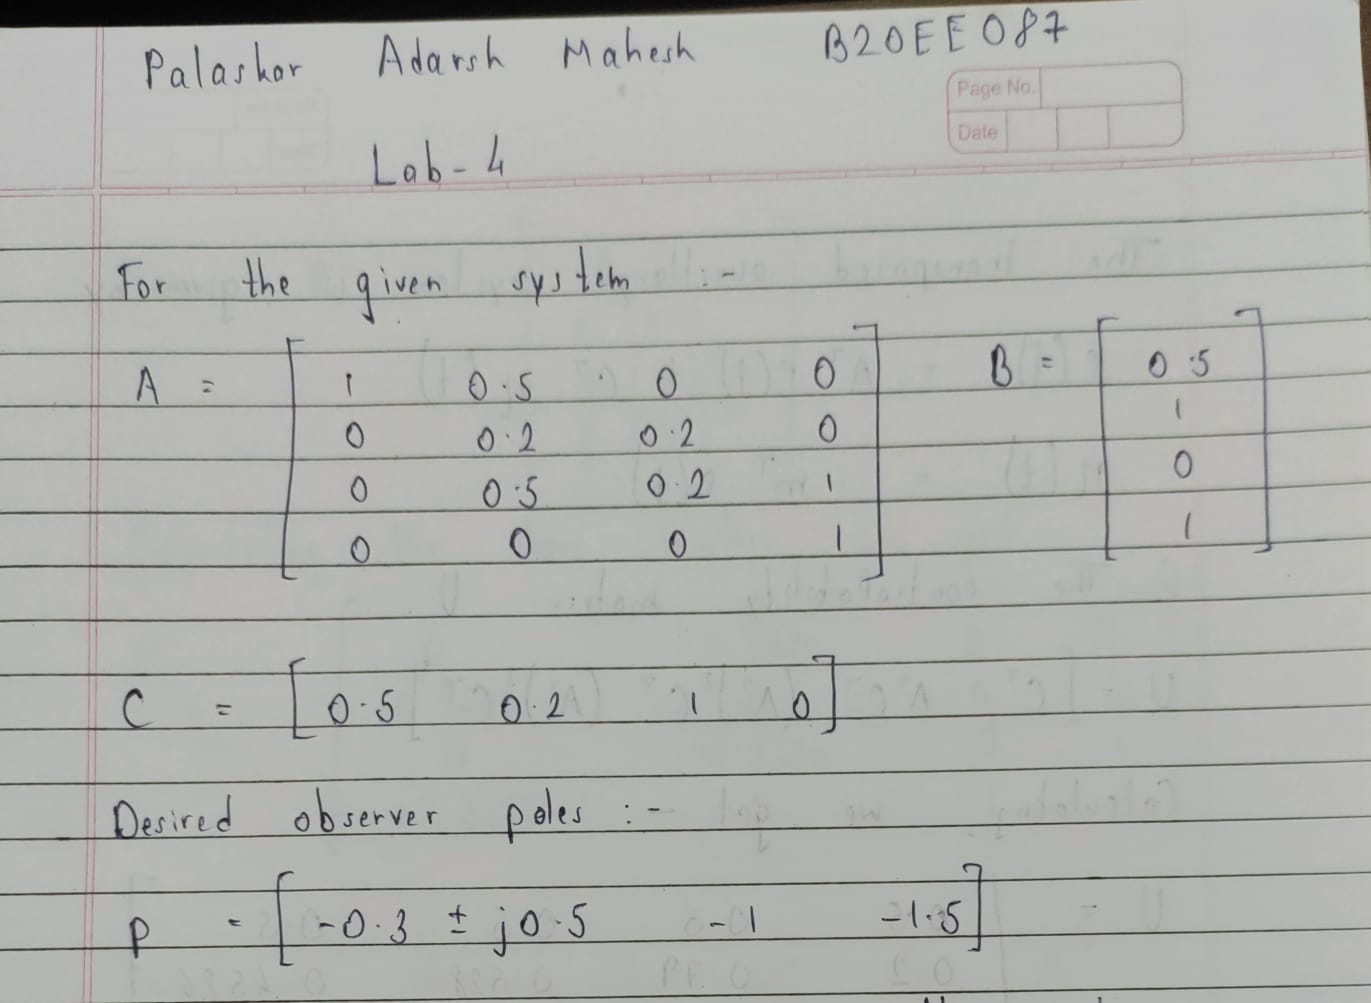 Palaskar Adarsh Mahesh B20EE087
Page No.
Date
Lab-4
For the given system :-
A = [ 1 0.5 0 0 B = [ 0.5
0 0.2 0.2 0 1
0 0.5 0.2 1 0
0 0 0 1 ] 1 ]
C = [ 0.5 0.2 1 0 ]
Desired observer poles :-
P = [ -0.3 ± j0.5 -1 -1.5 ]